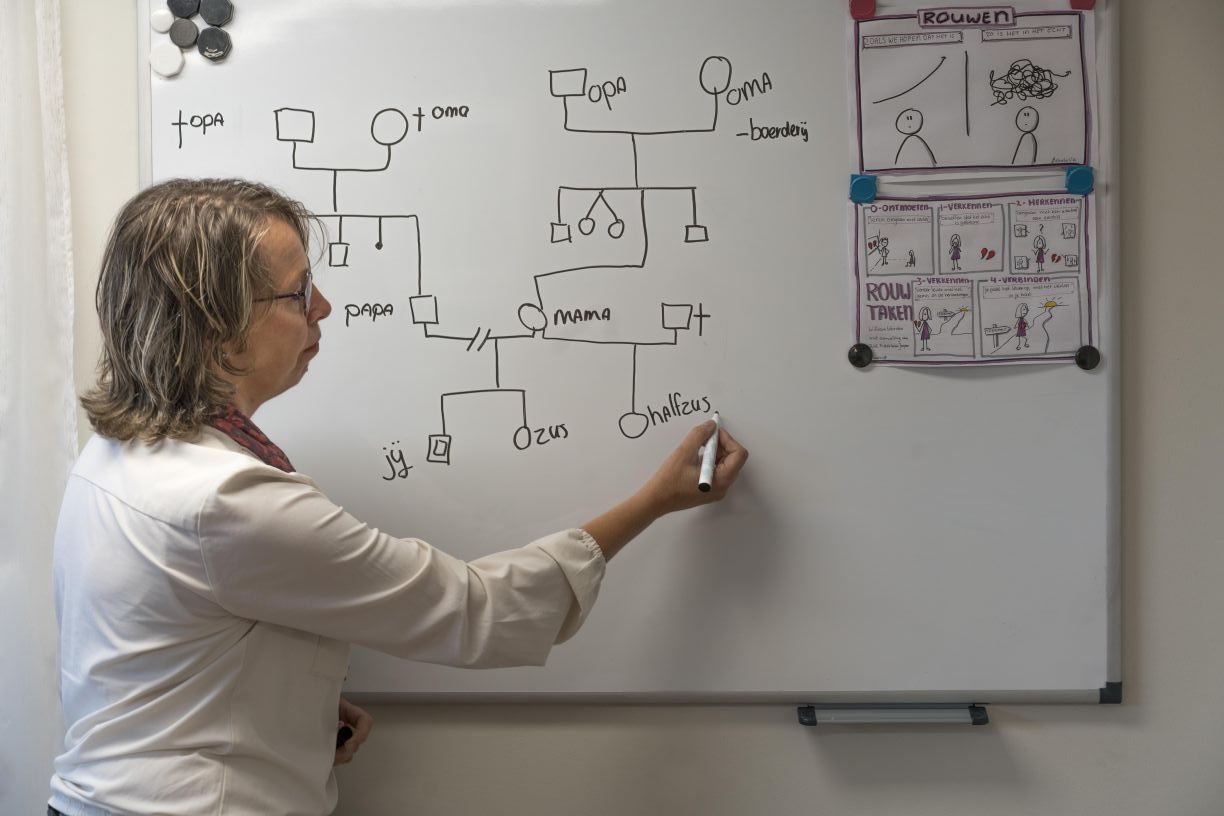 †OPA
†oma
OPA
OMA
-boerderij
PAPA
MAMA
†
jij
zus
hAlfzus
ROUWEN
ZOALS WE HOPEN DAT HET IS
ZO IS HET IN HET ECHT
0-ONTMOETEN
1-VERKENNEN
2-HERKENNEN
?
ROUW
TAKEN
3-VERKENNEN
4-VERBINDEN